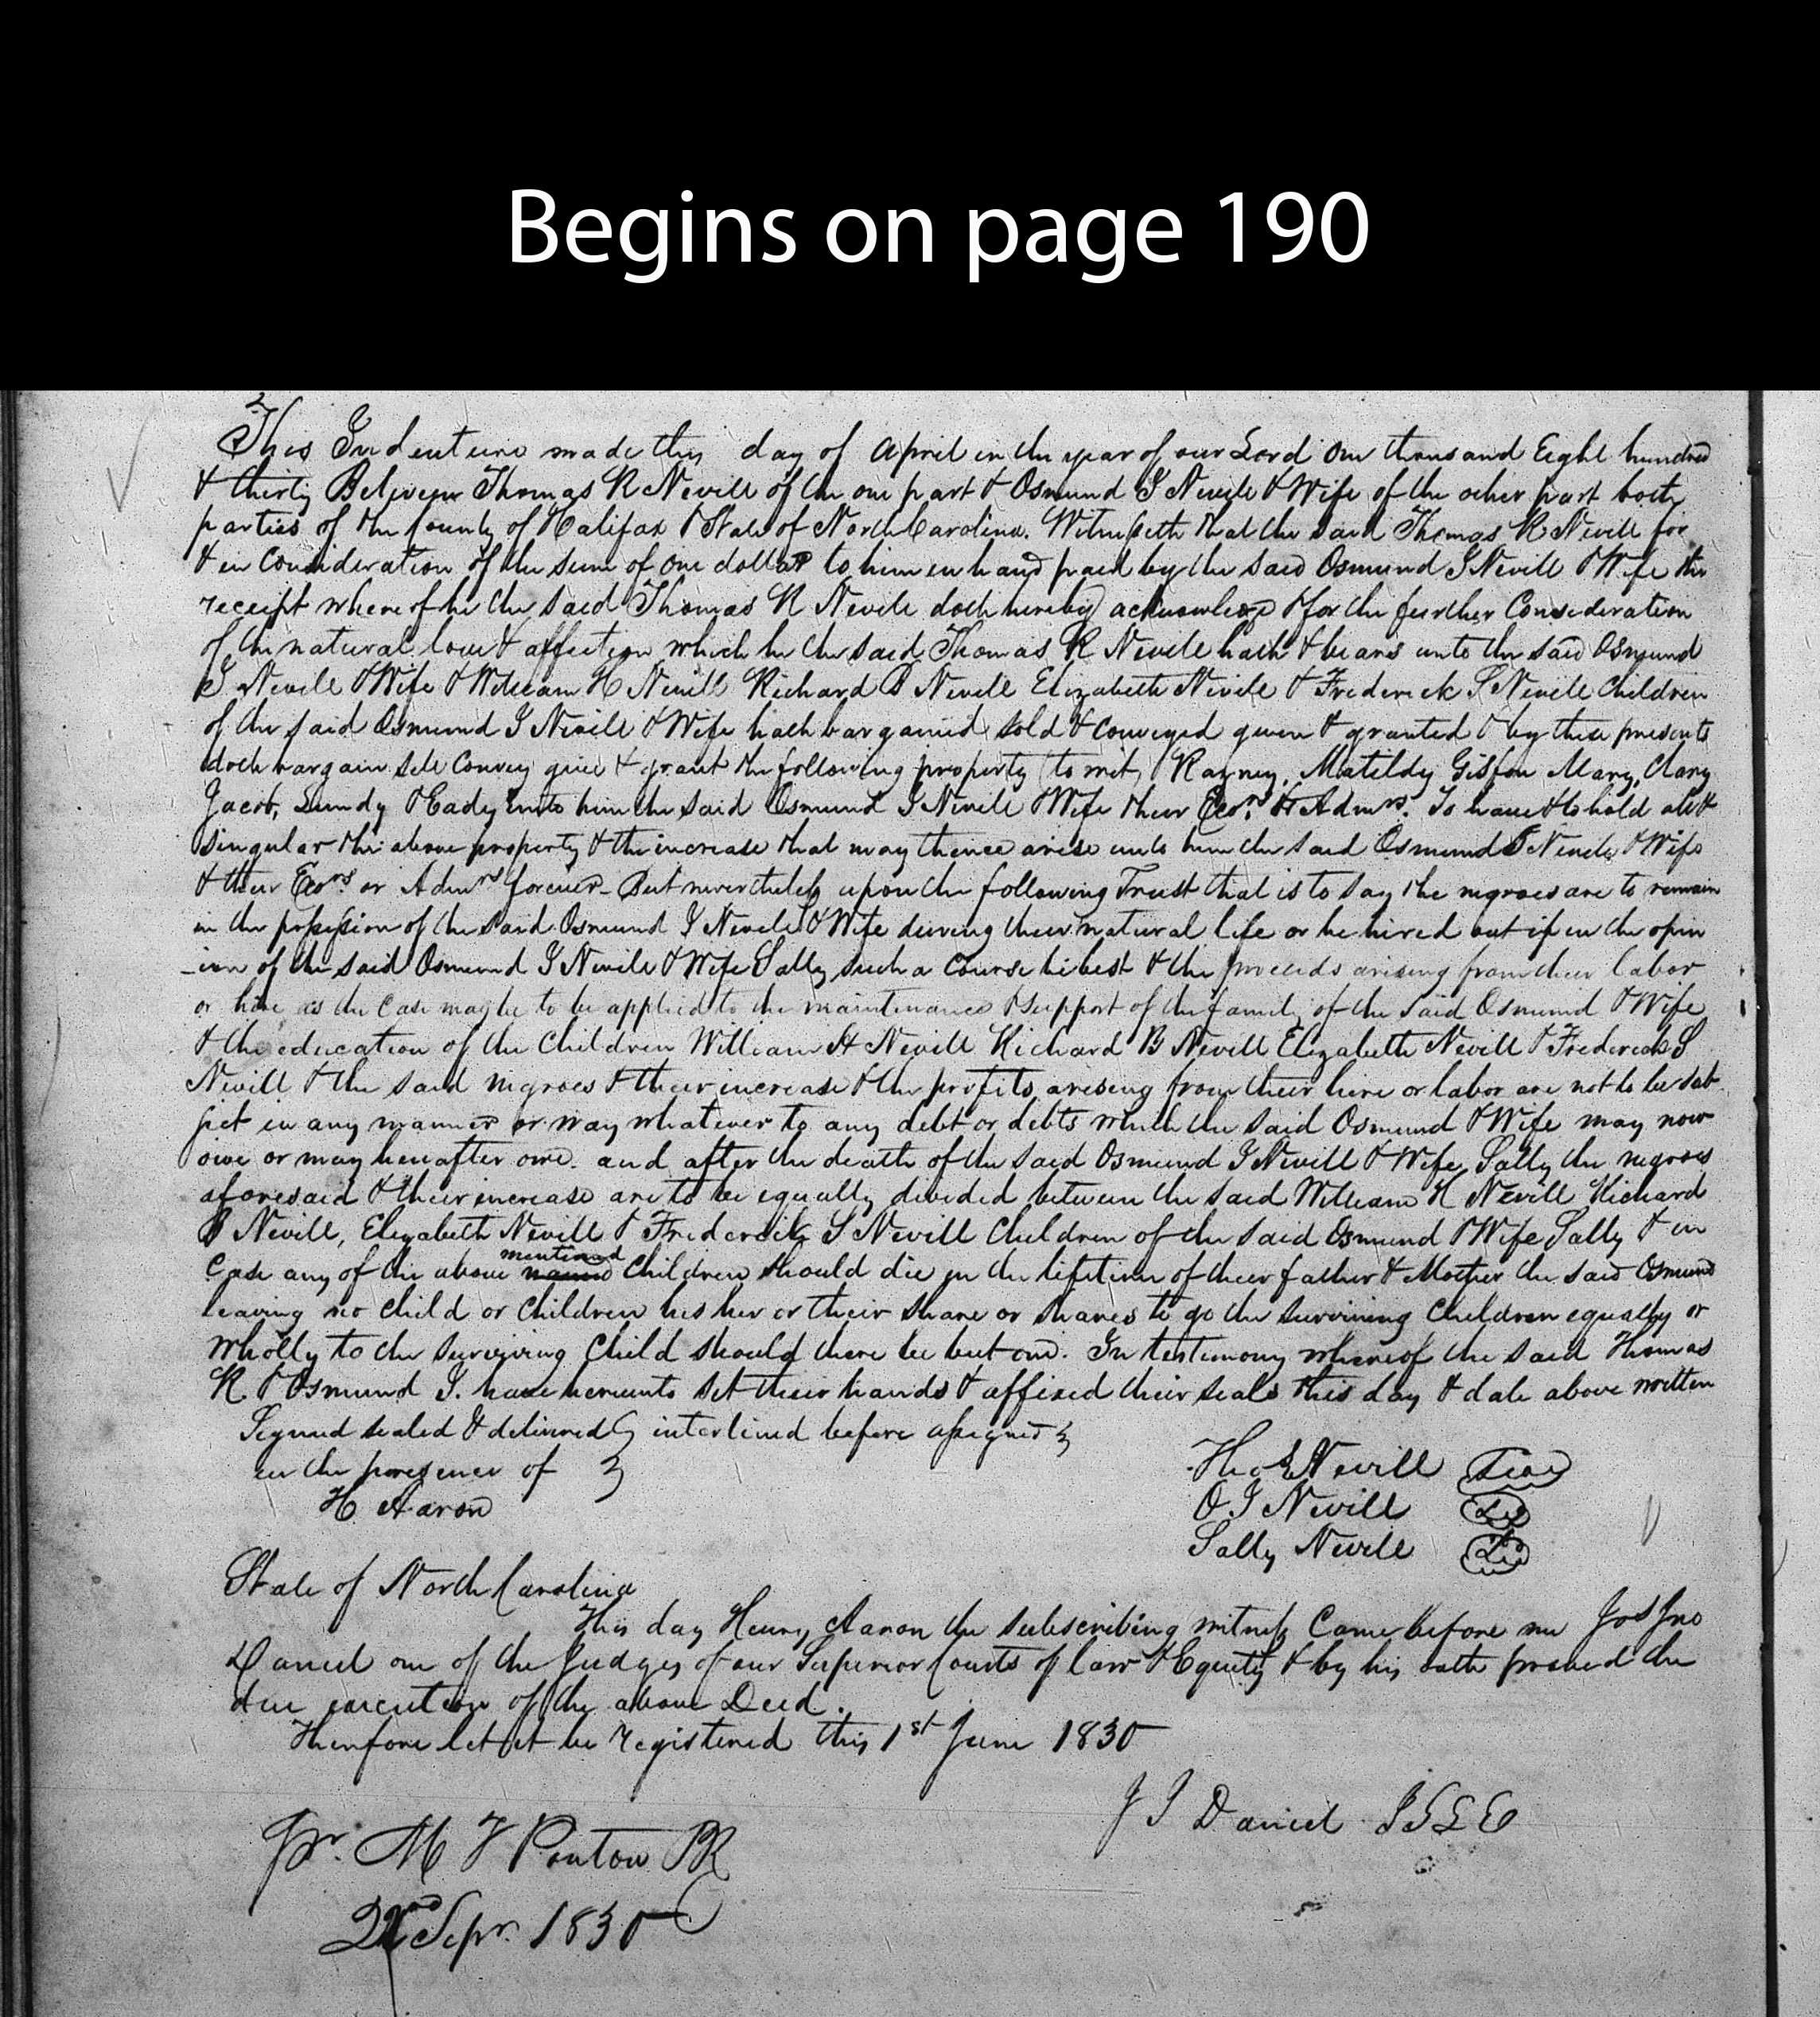 Begins on page 190
This Indenture made this day of April in the year of our Lord One thousand Eight hundred
& thirty Between Thomas R Nevill of the one part & Osmund J Nevill & Wife of the other part both
parties of the County of Halifax & State of North Carolina. Witnesseth that the said Thomas R Nevill for
& in Consideration of the sum of one dollar to him in hand paid by the said Osmund J Nevill & Wife the
receipt whereof he the said Thomas R Nevill doth hereby acknowledge & for the further Consideration
of the natural love & affection which he the said Thomas R Nevill hath & bears unto the said Osmund
J Nevill & Wife & William H Nevill Richard B Nevill Elizabeth Nevill & Frederick S Nevill Children
of the said Osmund J Nevill & Wife hath bargained sold & conveyed given & granted & by these presents
doth bargain sell Convey give & grant the following property (to wit) Rayney, Matildy Mary, Clary
Jacob, Lundy & Eady unto him the said Osmund J Nevill & Wife their Exors & Admrs. To have & to hold all &
singular the above property & the increase that may thence arise unto him the said Osmund J Nevill & Wife
& their Exors or Admrs forever - But nevertheless upon the following Trust that is to say the negroes are to remain
in the possession of the said Osmund J Nevill & Wife during their natural life or be hired out if in the opin
-ion of the said Osmund J Nevill & Wife Sally such a Course be best & the proceeds arising from their labor
or hire as the Case may be to be applied to the maintenance & support of the family of the said Osmund & Wife
& the education of the Children William H Nevill Richard B Nevill Elizabeth Nevill & Frederick S
Nevill & the said negroes & their increase & the profits arising from their hire or labor are not to be sub
ject in any manner or way whatever to any debt or debts which the said Osmund & Wife may now
owe or may hereafter owe. and after the death of the said Osmund J Nevill & Wife Sally the negroes
aforesaid & their increase are to be equally divided between the said William H Nevill Richard
B Nevill, Elizabeth Nevill & Frederick S Nevill Children of the said Osmund & Wife Sally & in
Case any of the above named mentioned Children should die in the lifetime of their father & Mother the said Osmund
leaving no child or children his her or their share or shares to go the surviving Children equally or
wholly to the surviving Child should there be but one. In testimony whereof the said Thomas
R. & Osmund J. have hereunto set their hands & affixed their seals this day & date above written
Signed sealed & delivered interlined before assigned
in the presence of
H Aaron
Tho R Nevill Seal
O. J Nevill
Sally Nevill
State of North Carolina
This day Henry Aaron the subscribing witness Came before me Jos Jno
Daniel one of the Judges of our Superior Courts of law & Equity & by his oath proved the
due execution of the above Deed.
Therefore let it be registered this 1st June 1830
J J Daniel JSLE
Pr. M F Ponton PR
Sepr. 1830